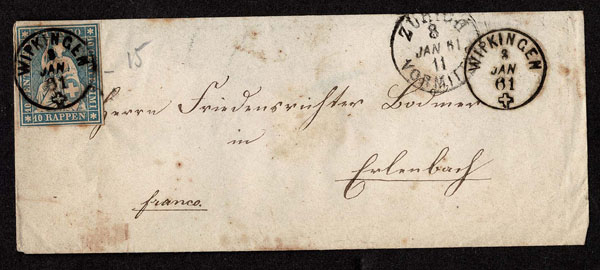 WIPKINGEN
8
JAN
61
10 RAPPEN
15
ZÜRICH
8
JAN 61
11
VORMIT
WIPKINGEN
8
JAN
61
Herrn Friedensrichter Bodmer
in
Erlenbach
franco.